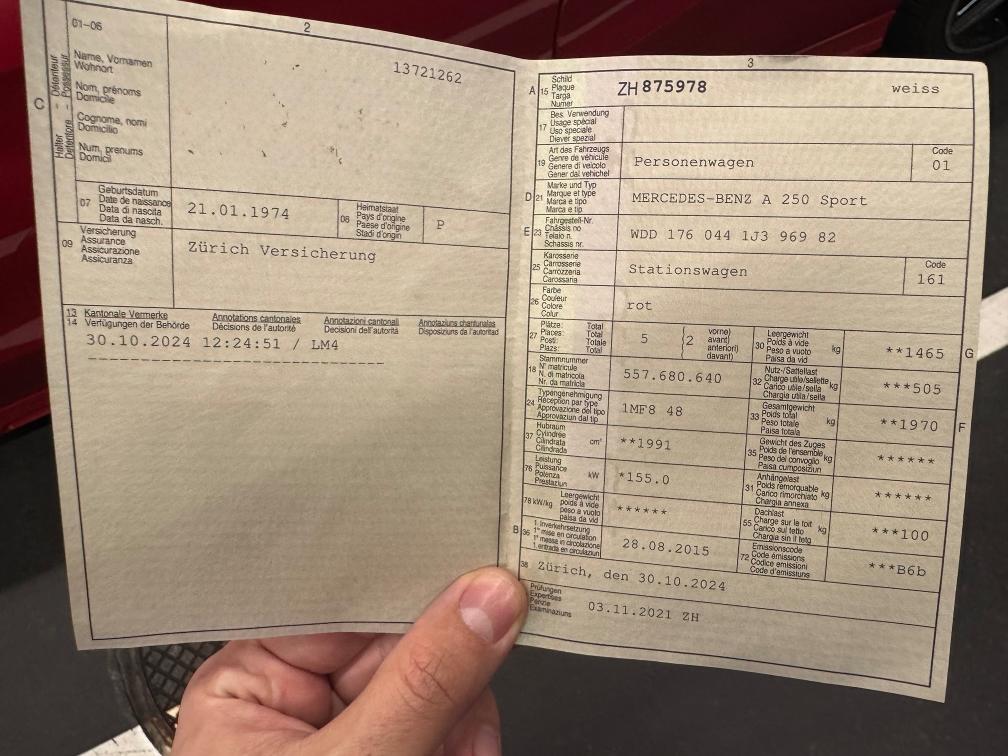 2
01-06
Name, Vornamen
Wohnort
Nom, prénoms
Domicile
Cognome, nomi
Domicilio
Num, prenums
Domicil
13721262
C
Halter Détenteur
Detentore Possessur
07
Geburtsdatum
Date de naissance
Data di nascita
Data da nasch.
21.01.1974
08
Heimatstaat
Pays d'origine
Paese d'origine
Stadi d'origin
P
09
Versicherung
Assurance
Assicurazione
Assicuranza
Zürich Versicherung
13 Kantonale Vermerke Annotations cantonales Annotazioni cantonali Annotaziuns chantunalas
14 Verfügungen der Behörde Décisions de l'autorité Decisioni dell'autorità Disposiziuns da l'autoritad
30.10.2024 12:24:51 / LM4
3
A 15
Schild
Plaque
Targa
Numer
ZH 875978 weiss
17
Bes. Verwendung
Usage spécial
Uso speciale
Diever spezial
19
Art des Fahrzeugs
Genre de véhicule
Genere di veicolo
Gener dal vehichel
Personenwagen
Code
01
D 21
Marke und Typ
Marque et type
Marca e tipo
Marca e tip
MERCEDES-BENZ A 250 Sport
E 23
Fahrgestell-Nr.
Châssis no
Telaio n.
Schassis nr.
WDD 176 044 1J3 969 82
25
Karosserie
Carrosserie
Carrozzeria
Carossaria
Stationswagen
Code
161
26
Farbe
Couleur
Colore
Colur
rot
27
Plätze: Total
Places: Total
Posti: Totale
Plazs: Total
5
{2
vorne)
avant)
anteriori)
davant)
30
Leergewicht
Poids à vide
Peso a vuoto
Paisa da vid
kg
**1465
G
18
Stammnummer
N° matricule
N. di matricola
Nr. da matricla
557.680.640
32
Nutz-/Sattellast
Charge utile/sellette
Carico utile/sella
Chargia utila/sella
kg
***505
24
Typengenehmigung
Réception par type
Approvazione del tipo
Approvaziun dal tip
1MF8 48
33
Gesamtgewicht
Poids total
Peso totale
Paisa totala
kg
**1970
F
37
Hubraum
Cylindrée
Cilindrata
Cilindrada
cm³
**1991
35
Gewicht des Zuges
Poids de l'ensemble
Peso del convoglio
Paisa cumposiziun
kg
******
76
Leistung
Puissance
Potenza
Prestaziun
kW
*155.0
31
Anhängelast
Poids remorquable
Carico rimorchiato
Chargia annexa
kg
******
78 kW/kg
Leergewicht
poids à vide
peso a vuoto
paisa da vid
******
55
Dachlast
Charge sur le toit
Carico sul tetto
Chargia sin il tetg
kg
***100
B 36
1. Inverkehrsetzung
1re mise en circulation
1a messa in circolazione
1. entrada en circulaziun
28.08.2015
72
Emissionscode
Code émissions
Codice emissioni
Code d'emissiuns
***B6b
38
Zürich, den 30.10.2024
Prüfungen
Expertises
Perizie
Examinaziuns
03.11.2021 ZH